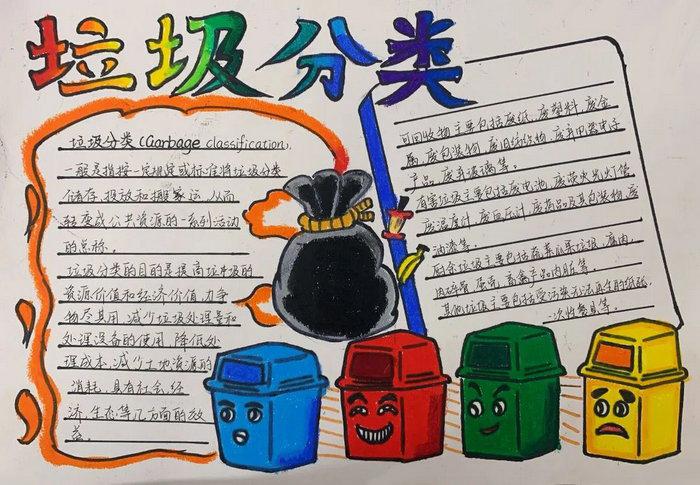 垃圾分类
垃圾分类(Garbage classification),
一般是指按一定规定或标准将垃圾分类
储存、投放和搬运,从而
转变成公共资源的一系列活动
的总称。
垃圾分类的目的是提高垃圾的
资源价值和经济价值,力争
物尽其用,减少垃圾处理量和
处理设备的使用,降低处
理成本,减少土地资源的
消耗,具有社会、经
济、生态等几方面的效
益。
可回收物主要包括废纸、废塑料、废金
属、废包装物、废旧纺织物、废弃电器电子
产品、废弃玻璃等。
有害垃圾主要包括废电池、废荧光灯管
废温度计、废血压计、废药品及其包装物、废
油漆等。
厨余垃圾主要包括蔬菜瓜果垃圾、腐肉、
肉碎骨、蛋壳、畜禽产品内脏等。
其他垃圾主要包括受污染
一次性餐具等。